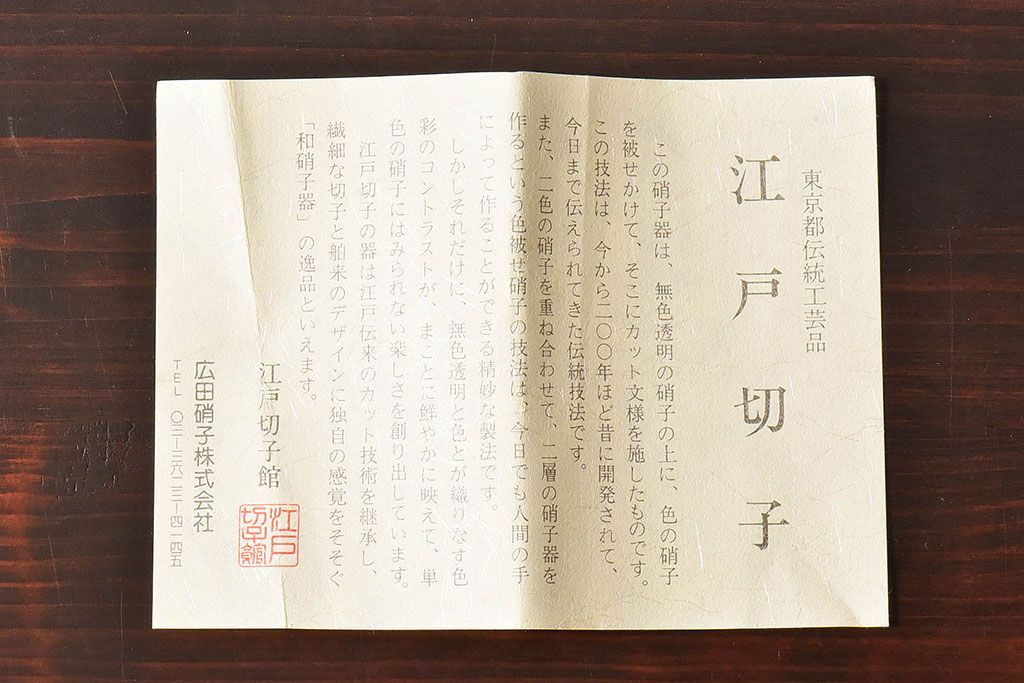 東京都伝統工芸品
江戸切子
この硝子器は、無色透明の硝子の上に、色の硝子
を被せかけて、そこにカット文様を施したものです。
この技法は、今から二〇〇年ほど昔に開発されて、
今日まで伝えられてきた伝統技法です。
また、二色の硝子を重ね合わせて、二層の硝子器を
作るという色被せ硝子の技法は、今日でも人間の手
によって作ることができる精妙な製法です。
しかしそれだけに、無色透明と色とが織りなす色
彩のコントラストが、まことに鮮やかに映えて、単
色の硝子にはみられない楽しさを創り出しています。
江戸切子の器は江戸伝来のカット技術を継承し、
繊細な切子と舶来のデザインに独自の感覚をそそぐ
「和硝子器」の逸品といえます。
江戸切子館
江戸
切子館
広田硝子株式会社
TEL 〇三―三六二三―四一四五